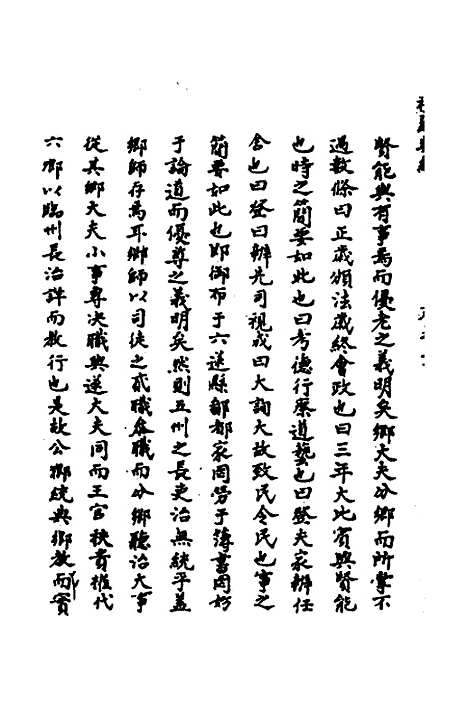 賢能與有事焉而優老之義明矣鄉大夫分鄉而所掌不
過數條曰正歲頒法歲終會政也曰三年大比賓興賢能
也時之簡要如此也曰考德行察道藝也曰登夫家辨任
舍也曰登曰辨先司視成曰大詢大故致民令民也事之
簡要如此也即御布于六遂縣鄙都家罔勞于簿書罔妨
于論道而優尊之義明矣然則五州之長吏治無統乎蓋
鄉師存焉耳鄉師以司徒之貳職叅職而分鄉聽治大事
從其鄉大夫小事專决職與遂大夫同而王官秩貴權代
六鄉以臨州長治詳而教行也是故公鄉統與鄉教而實